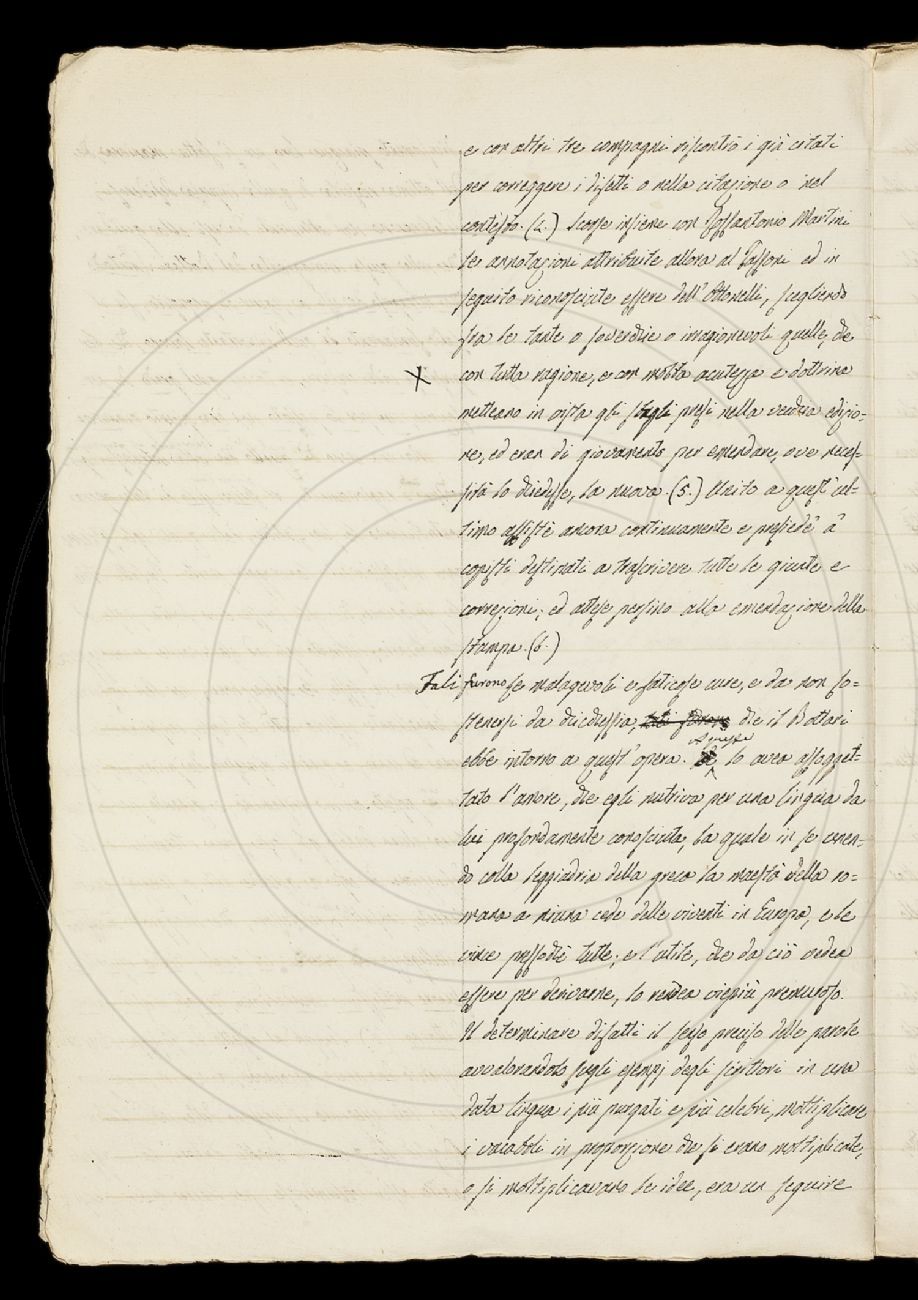 e con altri tre compagni riscontrò i già citati
per correggere i difetti o nella citazione o nel
contesto. (4.) Scorse insieme con Rossantonio Martini
le annotazioni attribuite allora al Tassoni ed in
seguito riconosciute essere dell'Ottonelli, scegliendo
fra le tante o soverchie o irragionevoli quelle, che
X con tutta ragione, e con molta acutezza e dottrina
metteano in vista gli sbagli presi nella vecchia edizio-
ne, ed eran di giovamento per emendare, ove neces-
sità lo chiedesse, la nuova. (5.) Unito a quest'ul-
timo assistè ancora continuamente e presiedè a'
copisti destinati a trascrivere tutte le giunte e
correzioni; ed attese persino alla emendazione della
stampa. (6.)
Tali furono le malagevoli e faticose cure, e da non so-
stenersi da chicchessia, tali furono che il Bottari
ebbe intorno a quest'opera. A queste lo avea assogget-
tato l'amore, che egli nutriva per una lingua da
lui profondamente conosciuta, la quale in se unen-
do colla leggiadria della greca la maestà della ro-
mana a niuna cede delle viventi in Europa, e le
vince pressochè tutte; e l'utile, che da ciò vedea
essere per derivarne, lo rendea viepiù premuroso.
Il determinare difatti il senso preciso delle parole
avvalorandolo cogli esempj degli scrittori in una
data lingua i più purgati e più celebri, moltiplicare
i vocaboli in proporzione che si erano moltiplicate,
o si moltiplicavano le idee, era un seguire